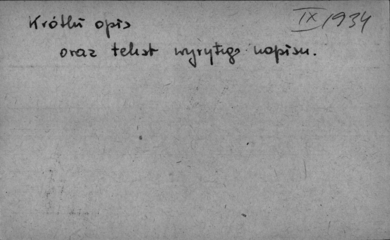 Krótki opis
IX 1934
oraz tekst wyrytego napisu.